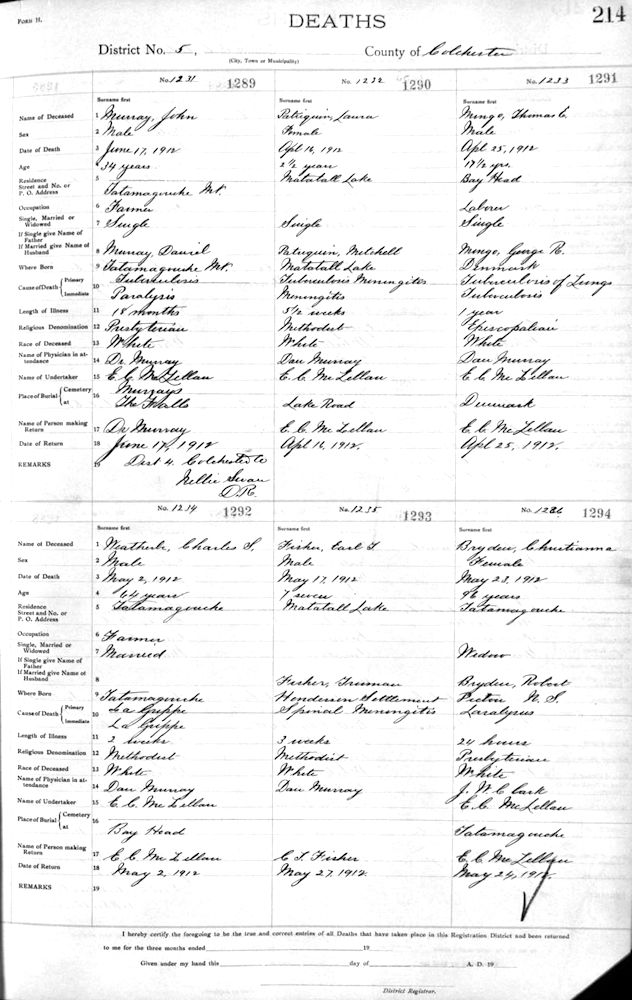 FORM H.
DEATHS
214
District No. 5,
County of Colchester
(City, Town or Municipality)
No. 1231 1289
No. 1232 1290
No. 1233 1291
Surname first
Surname first
Surname first
Name of Deceased 1 Murray, John Patriquin, Laura Mingo, Thomas E.
Sex 2 Male Female Male
Date of Death 3 June 17, 1912 Apl 16, 1912 Apl 25, 1912
Age 4 34 years 2½ years 17½ yrs.
Residence 5 Matatall Lake Bay Head
Street and No. or
P. O. Address Tatamagouche Mt.
Occupation 6 Farmer Laborer
Single, Married or
Widowed 7 Single Single Single
If Single give Name of
Father
If Married give Name of
Husband 8 Murray, Daniel Patriquin, Mitchell Mingo, George R.
Where Born 9 Tatamagouche Mt. Matatall Lake Denmark
Cause of Death Primary 10 Tuberculosis Tuberculosis Meningites Tuberculosis of Lungs
Immediate Paralysis Meningites Tuberculosis
Length of Illness 11 18 months 5½ weeks 1 year
Religious Denomination 12 Presbyterian Methodist Episcopalian
Race of Deceased 13 White White White
Name of Physician in at-
tendance 14 Dr Murray Dan Murray Dan Murray
Name of Undertaker 15 E. C. McLellan E. C. McLellan E. C. McLellan
Place of Burial Cemetery 16 Murrays
at The Falls Lake Road Denmark
Name of Person making
Return 17 Dr Murray E. C. McLellan E. C. McLellan
Date of Return 18 June 17, 1912 Apl 16, 1912. Apl 25, 1912.
REMARKS 19 Dist 4. Colchester Co
Nellie Swan
D.R.
No. 1234 1292
No. 1235 1293
No. 1236 1294
Surname first
Surname first
Surname first
Name of Deceased 1 Weatherbe, Charles S. Fisher, Earl T. Bryden, Christianna
Sex 2 Male Male Female
Date of Death 3 May 2, 1912 May 17, 1912 May 23, 1912
Age 4 64 years 7 seven 96 years
Residence 5 Tatamagouche Matatall Lake Tatamagouche
Street and No. or
P. O. Address
Occupation 6 Farmer
Single, Married or
Widowed 7 Married Widow
If Single give Name of
Father
If Married give Name of
Husband 8 Fisher, Truman Bryden, Robert
Where Born 9 Tatamagouche Henderson Settlement Pictou N. S.
Cause of Death Primary 10 La Grippe Spinal Meningitis Paralysis
Immediate La Grippe
Length of Illness 11 2 weeks 3 weeks 24 hours
Religious Denomination 12 Methodist Methodist Presbyterian
Race of Deceased 13 White White White
Name of Physician in at-
tendance 14 Dan Murray Dan Murray J. W. Clark
Name of Undertaker 15 E. C. McLellan E. C. McLellan
Place of Burial Cemetery 16
at Bay Head Tatamagouche
Name of Person making
Return 17 E C McLellan C T. Fisher E. C. McLellan
Date of Return 18 May 2, 1912 May 27, 1912. May 24, 1912.
REMARKS 19
I hereby certify the foregoing to be the true and correct entries of all Deaths that have taken place in this Registration District and been returned
to me for the three months ended 19
Given under my hand this day of A. D. 19
District Registrar.